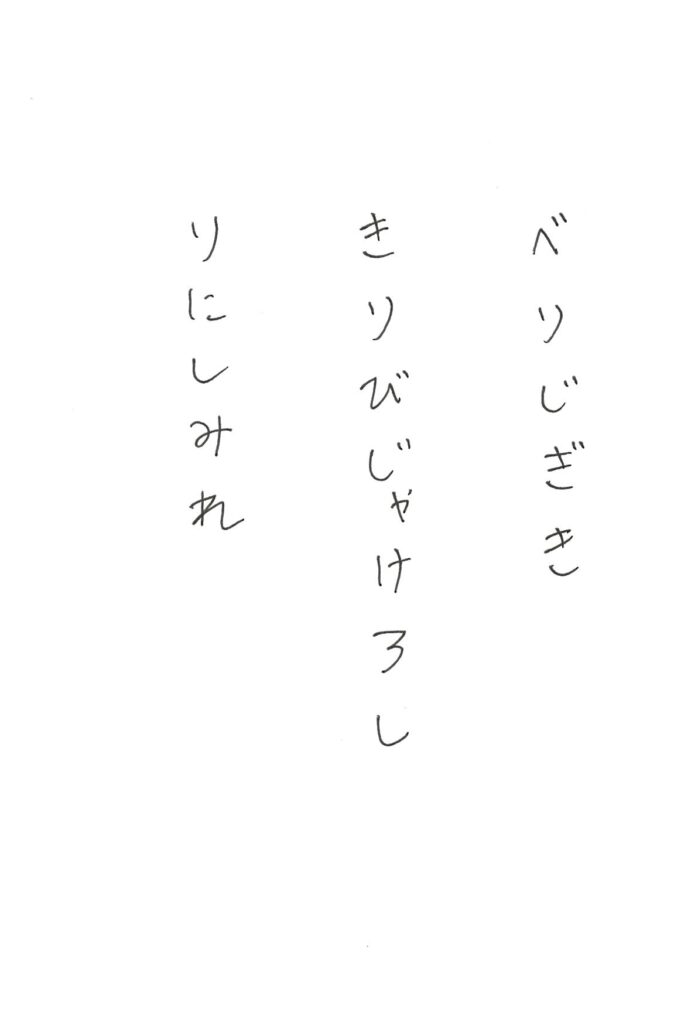 べりじぎき
きりびじゃけろし
りにしみれ